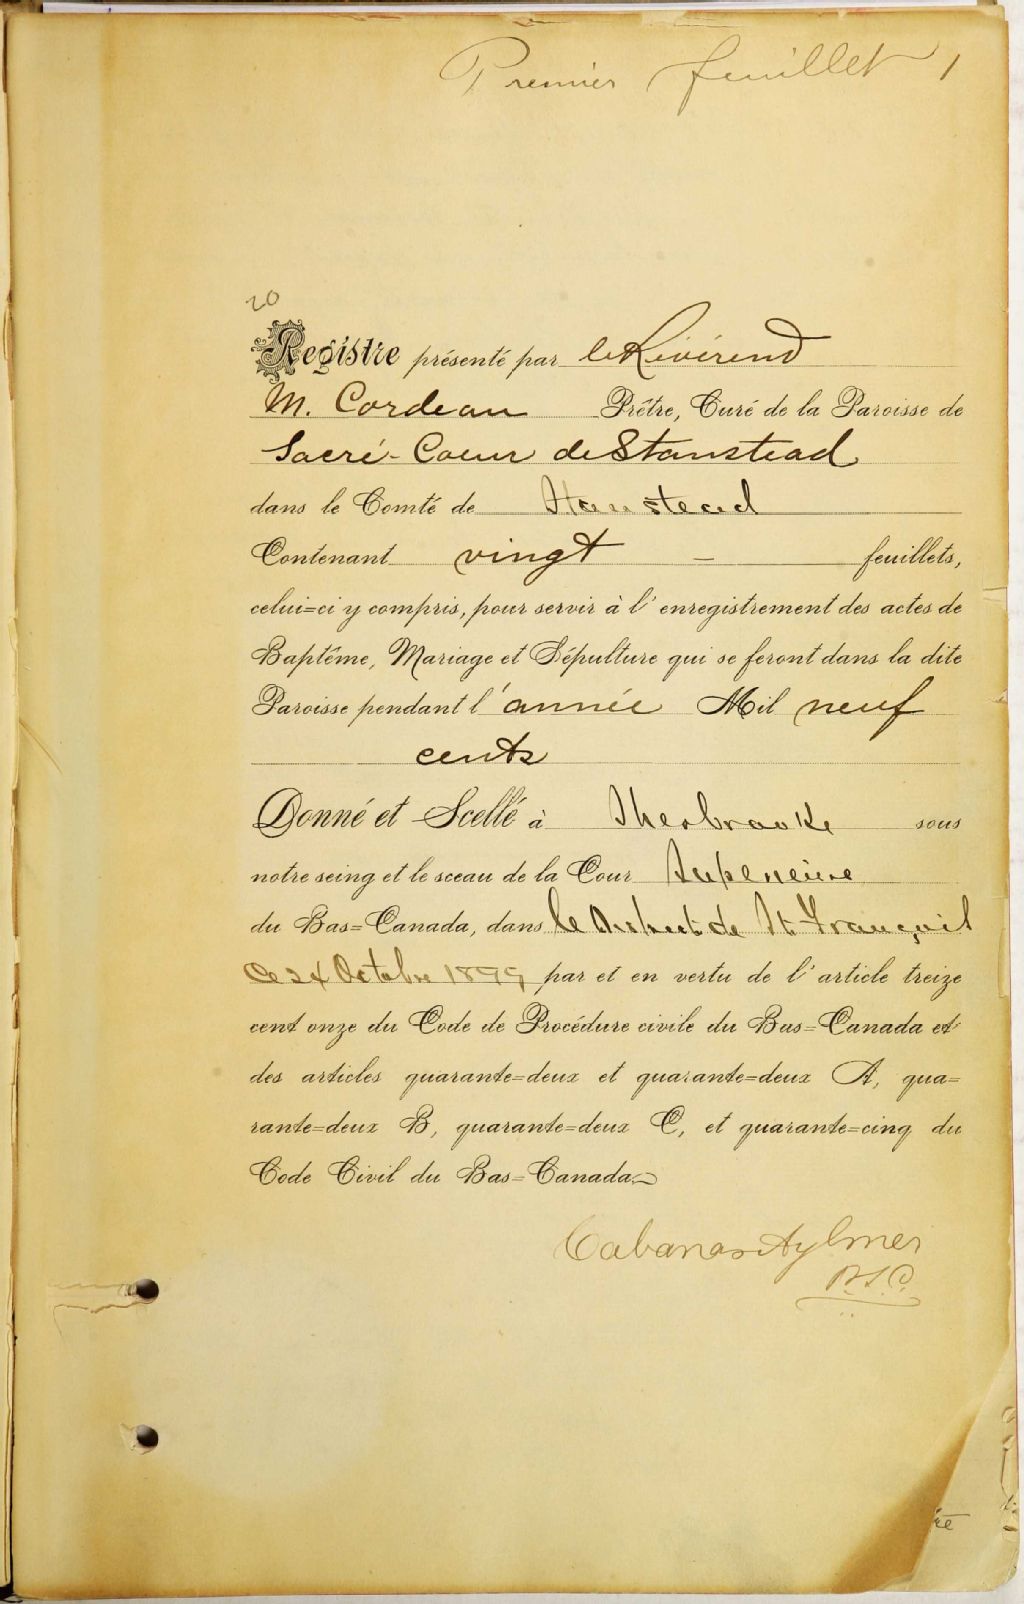 Premier feuillet 1
20
Registre présenté par le Révérend
M. Cordeau Prêtre, Curé de la Paroisse de
Sacré-Coeur de Stanstead
dans le Comté de Stanstead
Contenant vingt — feuillets,
celui=ci y compris, pour servir à l'enregistrement des actes de
Baptême, Mariage et Sépulture qui se feront dans la dite
Paroisse pendant l'année Mil neuf
cents
Donné et Scellé à Sherbrooke sous
notre seing et le sceau de la Cour Supérieure
du Bas=Canada, dans le District de St François
Ce 24 Octobre 1899 par et en vertu de l'article treize
cent onze du Code de Procédure civile du Bas=Canada et
des articles quarante=deux et quarante=deux A, qua=
rante=deux B, quarante=deux C, et quarante=cinq du
Code Civil du Bas=Canada.
Cabana & Aylmer
P.S.C.